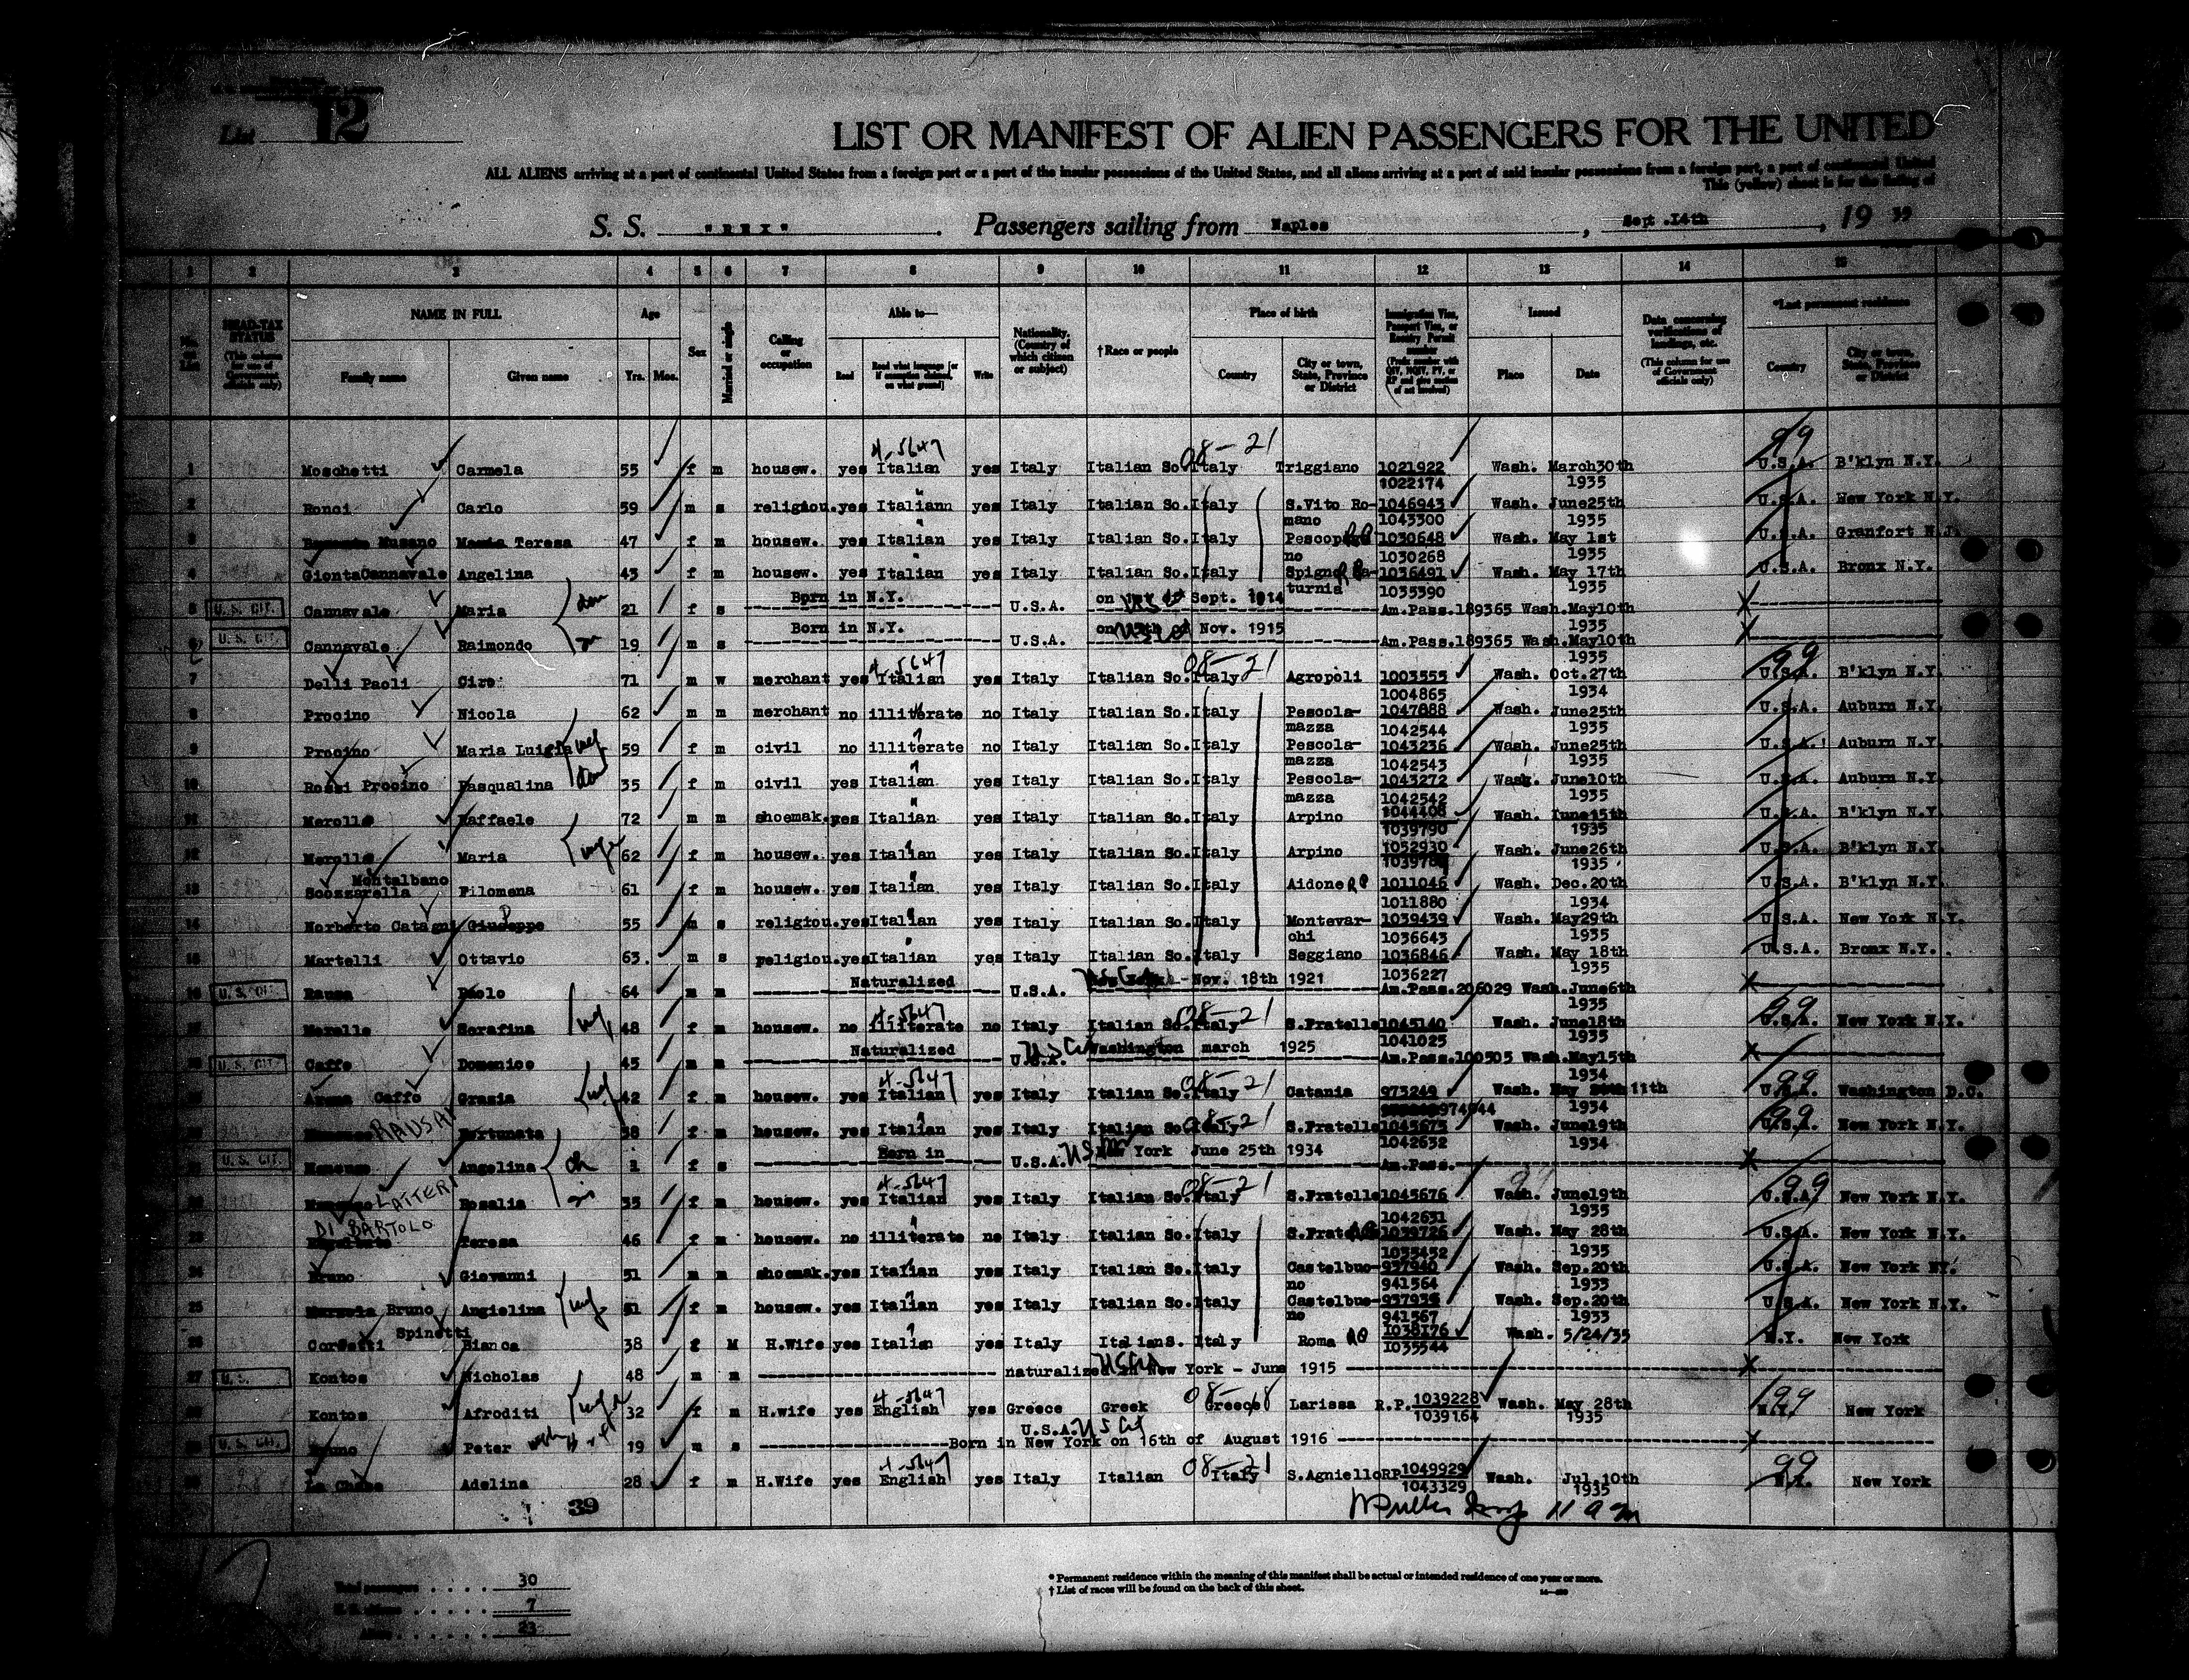 List 12
LIST OR MANIFEST OF ALIEN PASSENGERS FOR THE UNITED
ALL ALIENS arriving at a port of continental United States from a foreign port or a port of the insular possessions of the United States, and all aliens arriving at a port of said insular possessions from a foreign port, a port of continental United
This (yellow) sheet is for the listing of
S. S. "REX" . Passengers sailing from Naples , Sept.14th , 19
1 2 3 4 5 6 7 8 9 10 11 12 13 14 15
No. on List HEAD-TAX STATUS (This column for use of Government officials only) NAME IN FULL Family name Given name Age Yrs. Mos. Sex Married or single Calling or occupation Able to— Read Read what language [or if exemption claimed, on what ground] Write Nationality. (Country of which citizen or subject) †Race or people Place of birth Country City or town, State, Province or District Immigration Visa, Passport Visa, or Reentry Permit number (Prefix number with QIV, NQIV, PV, or RP and give section of act involved) Issued Place Date Data concerning verifications of landings, etc. (This column for use of Government officials only) *Last permanent residence Country City or town, State, Province or District
1 Moschetti Carmela 55 f m housew. yes Italian yes Italy Italian So. Italy Triggiano 1021922 Wash. March30th U.S.A. B'klyn N.Y.
4-5647 08-21 99
1022174 1935
2 Ronci Carlo 59 m s religiou. yes Italiann yes Italy Italian So. Italy S.Vito Ro- 1046943 Wash. June25th U.S.A. New York N.Y.
mano 1043300 1935
3 Musano Maria Teresa 47 f m housew. yes Italian yes Italy Italian So. Italy Pescop 1030648 Wash. May 1st U.S.A. Granfort N.J.
no 1030268 1935
4 GiontaCannavale Angelina 43 f m housew. yes Italian yes Italy Italian So. Italy Spigno 1036491 Wash. May 17th U.S.A. Bronx N.Y.
turnia 1035390 1935
5 U. S. CIT. Cannavale Maria 21 f s Born in N.Y. U.S.A. on Sept. 1914 Am.Pass.189365 Wash.May10th X
1935
6 U. S. CIT. Cannavale Raimondo 19 m s Born in N.Y. U.S.A. on Nov. 1915 Am.Pass.189365 Wash.May10th X
1935
7 Delli Paoli Ciro 71 m w merchant yes Italian yes Italy Italian So. Italy Agropoli 1003555 Wash. Oct.27th U.S.A. B'klyn N.Y.
4-5647 08-21 99
1004865 1934
8 Procino Nicola 62 m m merchant no illiterate no Italy Italian So. Italy Pescola- 1047888 Wash. June25th U.S.A. Auburn N.Y.
mazza 1042544 1935
9 Procino Maria Luigia 59 f m civil no illiterate no Italy Italian So. Italy Pescola- 1043236 Wash. June25th U.S.A. Auburn N.Y.
mazza 1042543 1935
10 Rossi Procino Pasqualina 35 f m civil yes Italian yes Italy Italian So. Italy Pescola- 1043272 Wash. June10th U.S.A. Auburn N.Y.
mazza 1042542 1935
11 Merolle Raffaele 72 m m shoemak. yes Italian yes Italy Italian So. Italy Arpino 1044408 Wash. June15th U.S.A. B'klyn N.Y.
1039790 1935
12 Merolle Maria 62 f m housew. yes Italian yes Italy Italian So. Italy Arpino 1052930 Wash. June26th U.S.A. B'klyn N.Y.
1935
Montalbano
13 Scozzarella Filomena 61 f m housew. yes Italian yes Italy Italian So. Italy Aidone 1011046 Wash. Dec.20th U.S.A. B'klyn N.Y.
1011880 1934
14 Norberto Catagni Giuseppe 55 m s religiou. yes Italian yes Italy Italian So. Italy Montevar- 1039439 Wash. May29th U.S.A. New York N.Y.
chi 1036643 1935
15 Martelli Ottavio 63. m s religiou. yes Italian yes Italy Italian So. Italy Seggiano 1036846 Wash. May 18th U.S.A. Bronx N.Y.
1036227 1935
16 U. S. CIT. Rausa Paolo 64 m m Naturalized U.S.A. - Nov. 18th 1921 Am.Pass.206029 Wash.June6th X
1935
17 Merolle Serafina 48 f m housew. no illiterate no Italy Italian So. Italy S.Fratello 1045140 Wash. June18th U.S.A. New York N.Y.
4-5647 08-21 99
1041025 1935
18 U. S. CIT. Caffo Domenico 45 m m Naturalized U.S.A. Washington march 1925 Am.Pass.100505 Wash.May15th X
1934
19 Arena Caffo Grazia 42 f m housew. yes Italian yes Italy Italian So. Italy Catania 973249 Wash. May 11th U.S.A. Washington D.C.
4-5647 08-21 99
974944 1934
20 RAUSA Fortunata 38 f m housew. yes Italian yes Italy Italian So. Italy S.Fratello 1045675 Wash. June19th U.S.A. New York N.Y.
1042632 1934
21 U. S. CIT. Angelina 1 f s Born in U.S.A. New York June 25th 1934 Am.Pass. X
22 LATTERI Rosalia 35 f m housew. yes Italian yes Italy Italian So. Italy S.Fratello 1045676 Wash. June19th U.S.A. New York N.Y.
4-5647 08-21 99
1042631 1935
DI BARTOLO
23 Teresa 46 f m housew. no illiterate no Italy Italian So. Italy S.Frat 1039726 Wash. May 28th U.S.A. New York N.Y.
1035452 1935
24 Bruno Giovanni 51 m m shoemak. yes Italian yes Italy Italian So. Italy Castelbuo- 937940 Wash. Sep.20th U.S.A. New York NY.
no 941564 1933
25 Bruno Angielina 51 f m housew. yes Italian yes Italy Italian So. Italy Castelbuo- 937939 Wash. Sep.20th U.S.A. New York N.Y.
no 941567 1933
Spinetti
26 Bianca 38 f M H.Wife yes Italian yes Italy ItalianS. Italy Roma 1038176 Wash. 5/24/35 N.Y. New York
1035544
27 U.S. Kontos Nicholas 48 m m naturalized in New York - June 1915 X
28 Kontos Afroditi 32 f m H.wife yes English yes Greece Greek Greece Larissa R.P. 1039228 Wash. May 28th N.Y. New York
4-5647 99
1039164 1935
U.S.A.
29 U. S. CIT. Bruno Peter 19 m s Born in New York on 16th of August 1916 X
30 Adelina 28 f m H.Wife yes English yes Italy Italian Italy S.Agniello RP 1049929 Wash. Jul.10th N.Y. New York
4-5647 08-21 99
1043329 1935
39
11 a m
Total passengers 30
7
Aliens 23
* Permanent residence within the meaning of this manifest shall be actual or intended residence of one year or more.
† List of races will be found on the back of this sheet.